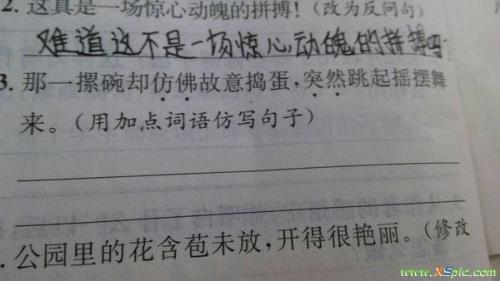 2. 这真是一场惊心动魄的拼搏!(改为反问句)
难道这不是一场惊心动魄的拼搏吗
3. 那一摞碗却仿佛故意捣蛋,突然跳起摇摆舞
来。(用加点词语仿写句子)
. 公园里的花含苞未放,开得很艳丽。(修改
www.XSpic.com